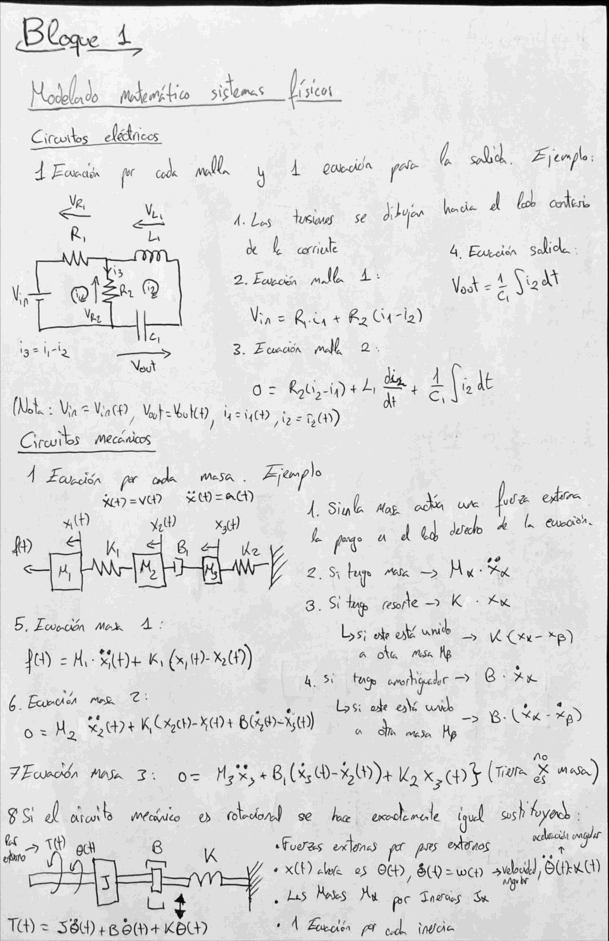 Bloque 1
Modelado matemático sistemas físicos
Circuitos eléctricos
1 Ecuación por cada malla y 1 ecuación para la salida. Ejemplo:
V_R1
V_L1
R1
L1
Vin
i1
i3
R2
V_R2
i2
C1
Vout
i3 = i1-i2
1. Las tensiones se dibujan hacia el lado contrario
de la corriente
2. Ecuación malla 1:
Vin = R1·i1 + R2 (i1-i2)
3. Ecuación malla 2:
0 = R2(i2-i1) + L1 di2/dt + 1/C1 ∫ i2 dt
4. Ecuación salida:
Vout = 1/C1 ∫ i2 dt
(Nota: Vin = Vin(t), Vout = Vout(t), i1 = i1(t), i2 = i2(t))
Circuitos mecánicos
1 Ecuación por cada masa. Ejemplo
ẋ(t) = v(t) ẍ(t) = a(t)
x1(t)
x2(t)
x3(t)
f(t)
M1
K1
M2
B1
M3
K2
1. Si en la masa actúa una fuerza externa
la pongo en el lado derecho de la ecuación.
2. Si tengo masa → Mα · ẍα
3. Si tengo resorte → K · xα
↳ si este está unido
a otra masa Mβ → K (xα - xβ)
4. si tengo amortiguador → B · ẋα
↳ si este está unido
a otra masa Mβ → B · (ẋα - ẋβ)
5. Ecuación masa 1:
f(t) = M1 · ẍ1(t) + K1 (x1(t) - x2(t))
6. Ecuación masa 2:
0 = M2 ẍ2(t) + K1(x2(t) - x1(t) + B(ẋ2(t) - ẋ3(t))
7 Ecuación masa 3: 0 = M3 ẍ3 + B1 (ẋ3(t) - ẋ2(t)) + K2 x3(t) } (Tierra no es masa)
8 Si el circuito mecánico es rotacional se hace exactamente igual sustituyendo:
Par
externo → T(t)
θ(t)
J
B
K
T(t) = Jθ̈(t) + Bθ̇(t) + Kθ(t)
· Fuerzas externas por pares externos
· x(t) ahora es θ(t), θ̇(t) = ω(t) → velocidad angular, θ̈(t) = α(t)
aceleración angular
· Las Masas Mα por Inercias Jα
· 1 Ecuación por cada inercia